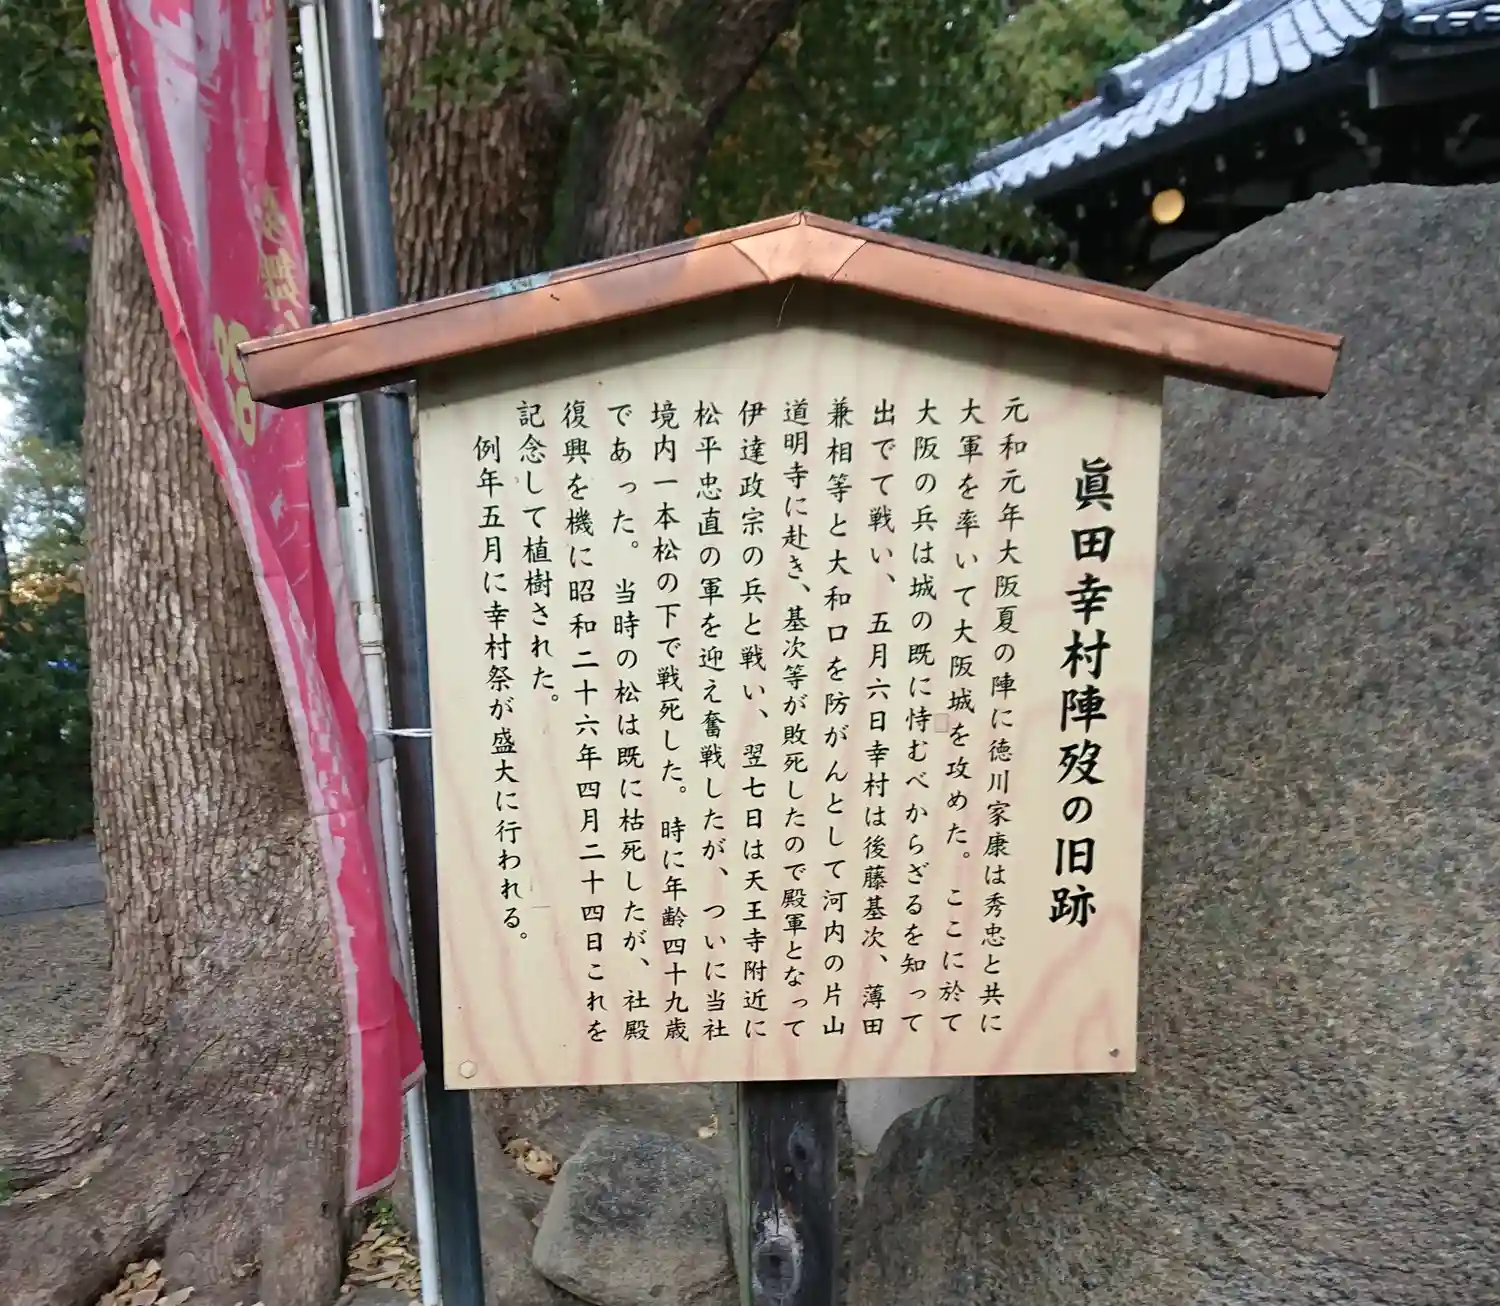 眞田幸村陣歿の旧跡
元和元年大阪夏の陣に徳川家康は秀忠と共に
大軍を率いて大阪城を攻めた。ここに於て
大阪の兵は城の既に恃むべからざるを知って
出でて戦い、五月六日幸村は後藤基次、薄田
兼相等と大和口を防がんとして河内の片山
道明寺に赴き、基次等が敗死したので殿軍となって
伊達政宗の兵と戦い、翌七日は天王寺附近に
松平忠直の軍を迎え奮戦したが、ついに当社
境内一本松の下で戦死した。時に年齢四十九歳
であった。当時の松は既に枯死したが、社殿
復興を機に昭和二十六年四月二十四日これを
記念して植樹された。
例年五月に幸村祭が盛大に行われる。